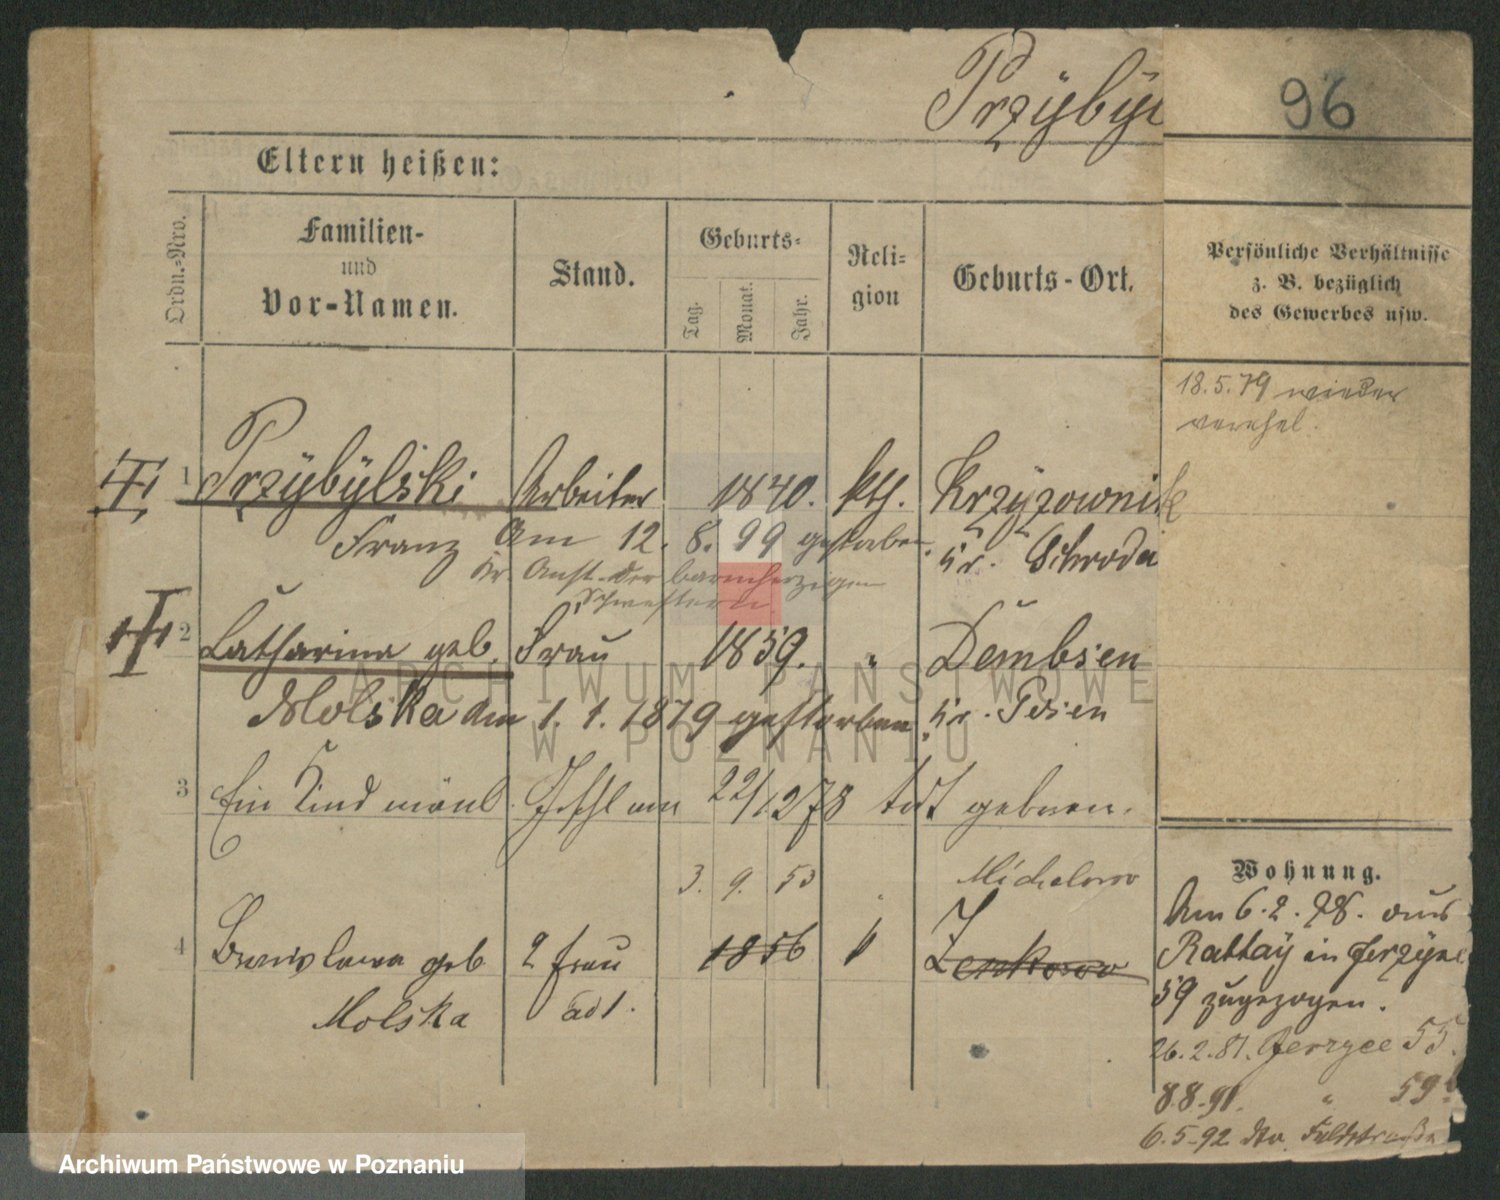 Przÿbÿl
96
Eltern heißen:
Ordn.-Nro.
Familien-
und
Vor-Namen.
Stand.
Geburts-
Tag.
Monat.
Jahr.
Reli-
gion
Geburts-Ort.
Persönliche Verhältnisse
z. B. bezüglich
des Gewerbes usw.
18.5.79 wieder
verehel.
1 Przÿbÿlski Arbeiter 1840. kth. Krzyzownik
Franz Am 12. 8. 99 gestorben. Kr. Schroda
Kr. Anst. der barmherzigen
Schwestern
2 Catharina geb. Frau 1859. " Dembsen
Molska am 1. 1. 1879 gestorben. Kr. Posen
3 Ein Kind männl. am 22/12 78 todt geboren.
3. 9. 53 Michalowo
4 Bronislawa geb 2 Frau 1856 " Zenkowo
Molska ad 1.
Wohnung.
Am 6.2.78. aus
Rattaÿ in Jerzÿce
59 zugezogen.
26.2.81. Jerzyce 55.
8.8.91. " 59
6.5.92 dto. Feldstraße
ARCHIWUM PAŃSTWOWE
W POZNANIU
Archiwum Państwowe w Poznaniu